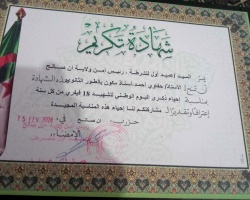 شهادة تكريم
يسر السيد / عميد أول للشرطة ، رئيس أمن ولاية إن صالح
أن تمنح الأستاذ / حفاوي أحمد أستاذ مكون بالطور الثانوي هذه الشهادة
بمناسبة إحياء ذكرى اليوم الوطني للشهيد 18 فيفري من كل سنة
إعترافا وتقديرا لمشاركتكم لنا إحياء هذه المناسبة المجيدة
حرر ب: إن صالح في:
الإمضاء